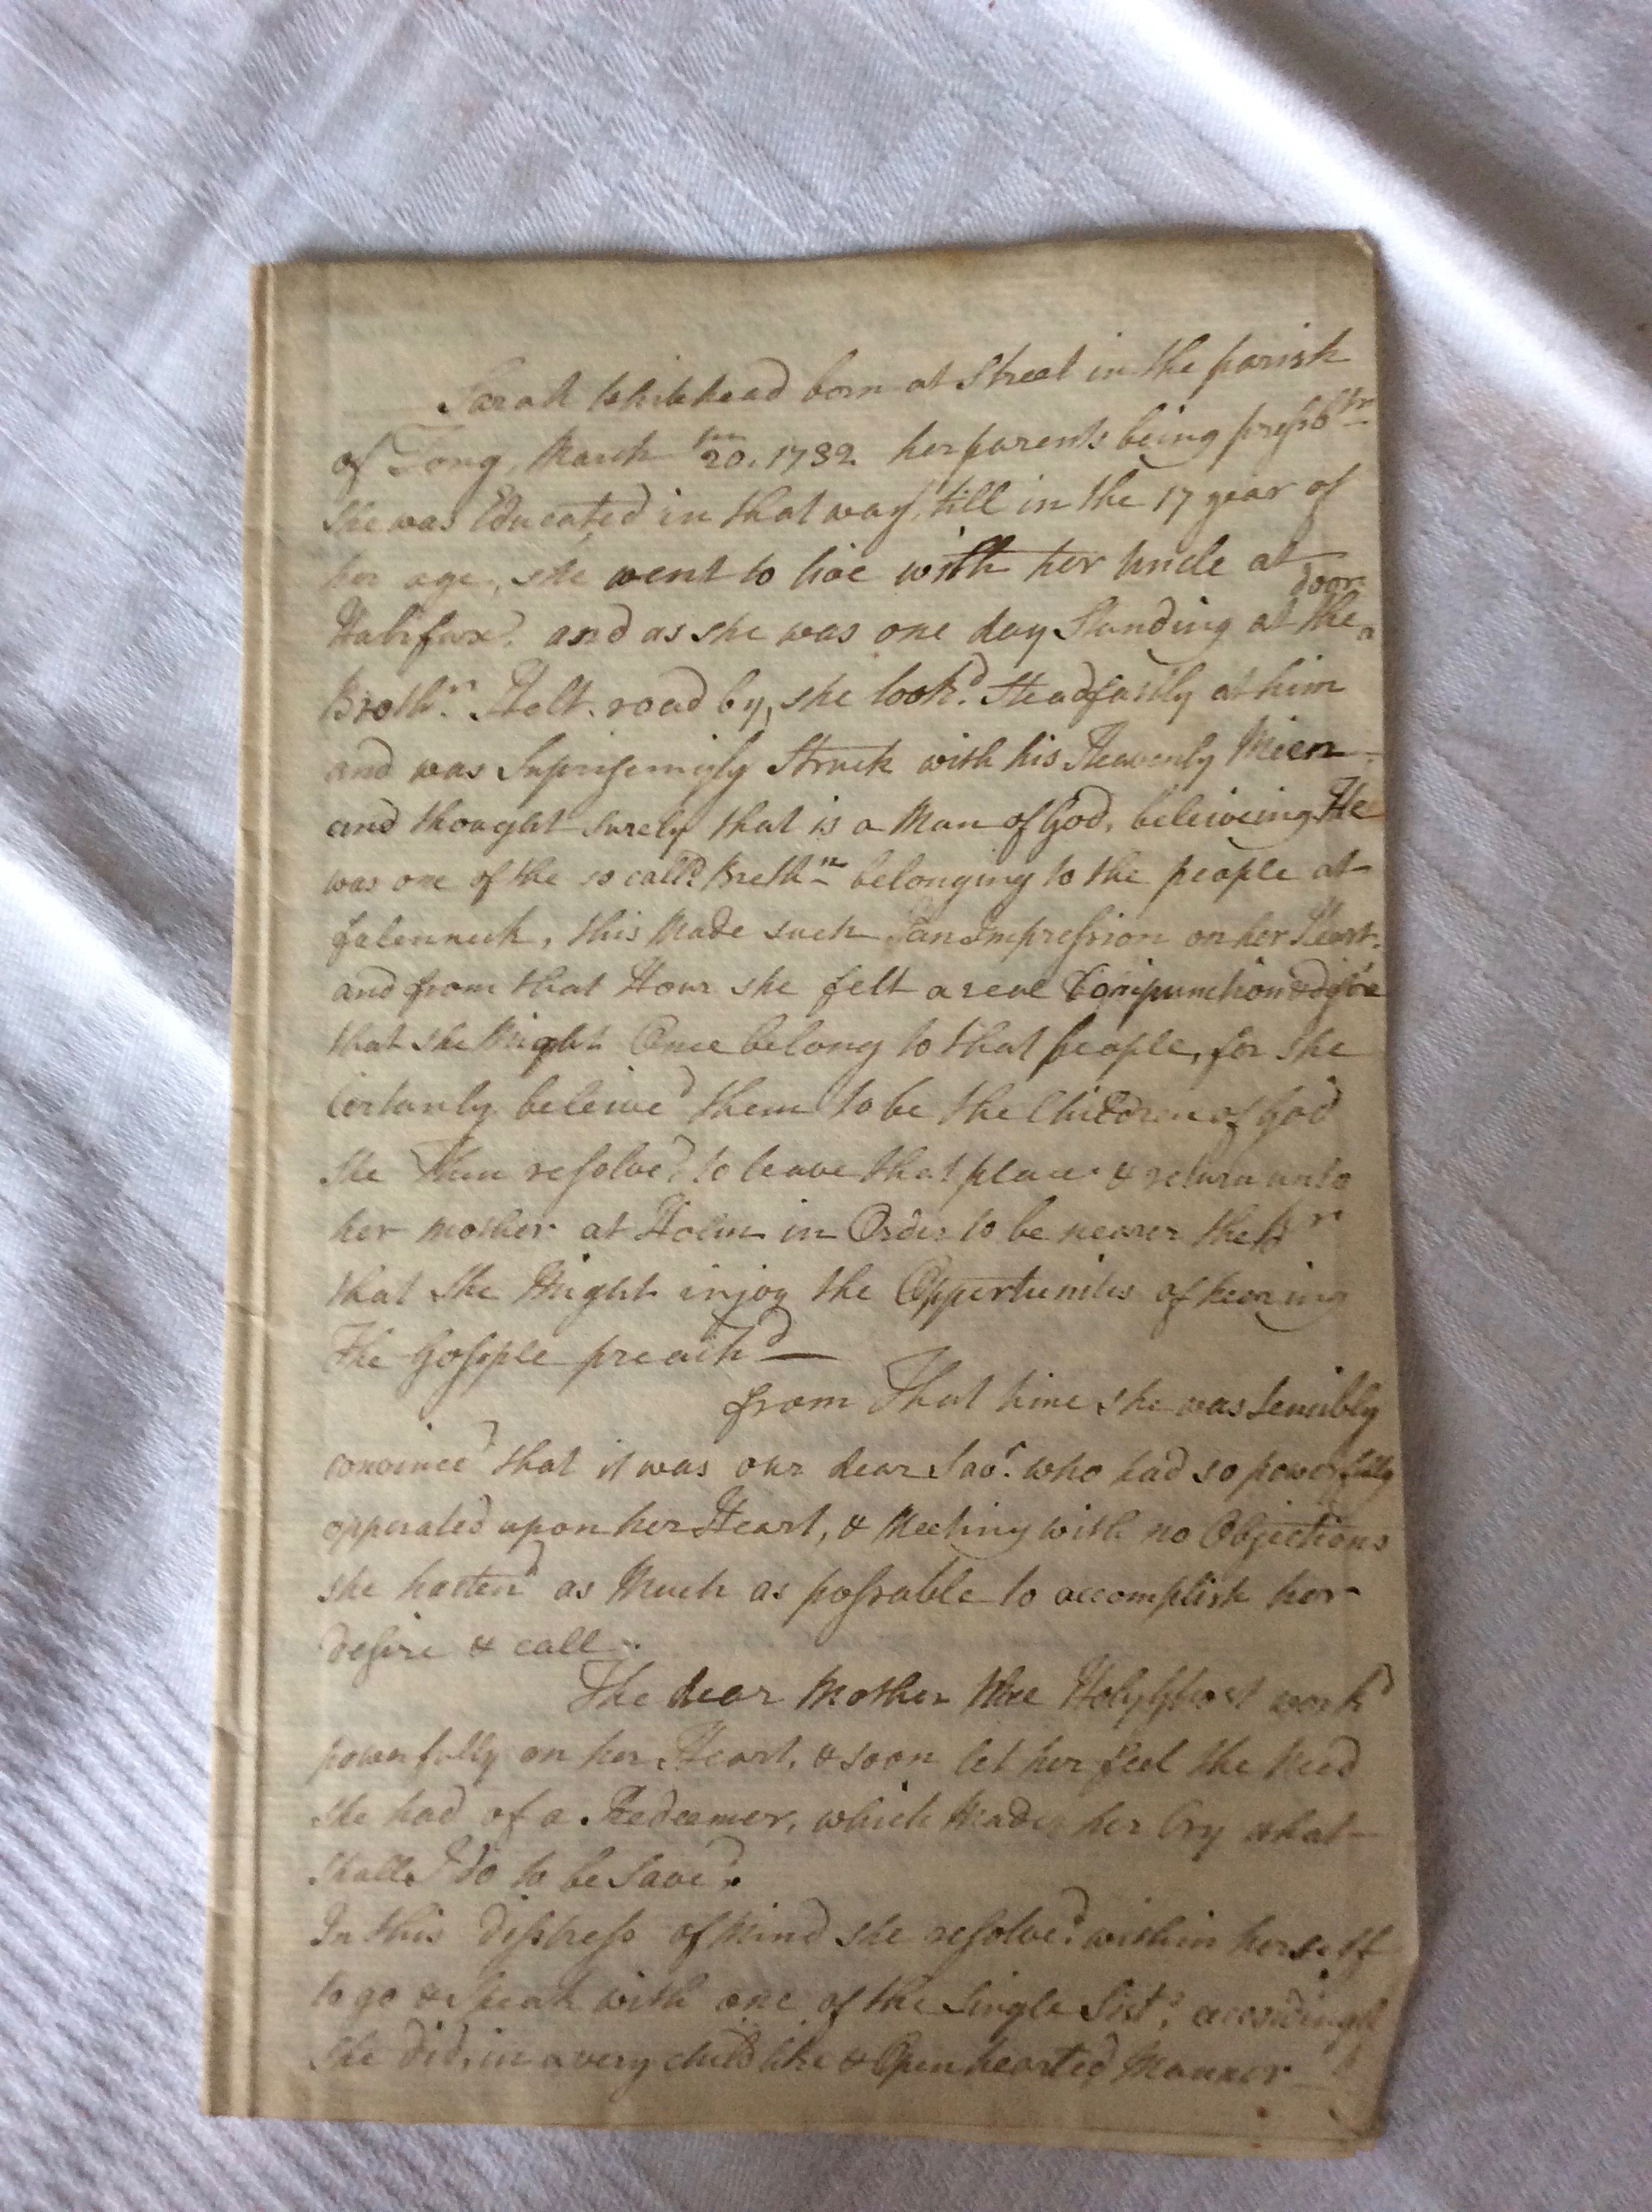 Sarah Whitehead born at Street in the parish
of Tong, March 20. 1732 her parents being presb
she was Educated in that way, till in the 17 year of
her age, she went to live with her Uncle at
door
Halifax. and as she was one day Standing at the
Brothr. Holt. road by, she look'd steadfastly at him
and was Suprisemigly Struck with his Heavenly Mien
and thought surely that is a Man of God, beleiveing He
was one of the so call'd Brethrn belonging to the people at
fulenneck, this Made such an Impression on her Heart.
and from that Hour she felt a reul Compunction & desire
that she Might Once belong to that people, for she
Certanly beleive'd them to be the Children of God
she then resolve'd to leave that place & return unto
her mother at Holm in Order to be nearer the Br
that she Might injoy the Oppertunites of hearing
The Gospple preach'd —
from That time she was Sensibly
convince'd that it was our dear Savr. who had so powerfully
opperated upon her Heart, & Meeting with no Objections
she hasten'd as Much as possable to accomplish her
desire & call.
The dear Mother the Holy Ghost work'd
powerfully on her Heart, & soon let her feel the Need
she had of a Redeemer, which Made her Cry what
shall I do to be Save'd.
In this disstress of Mind she resolve'd within herself
to go & Speak with one of the Single Sistrs, accordingly
She did, in a very child like & Open hearted Manner